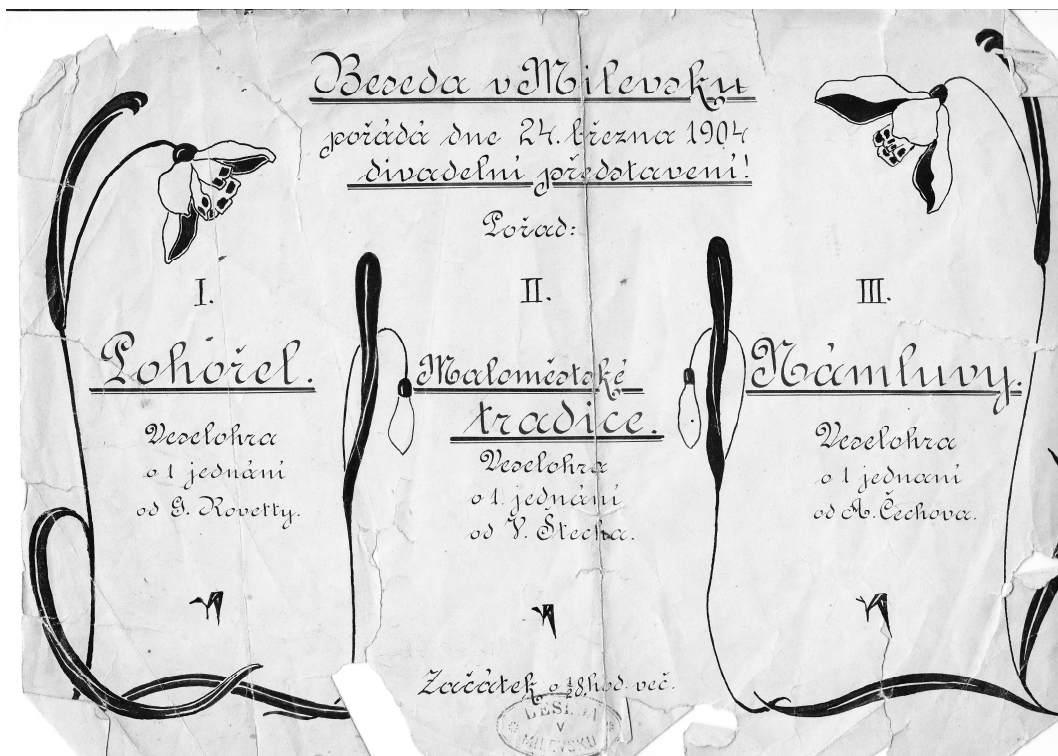 Beseda v Milevsku
pořádá dne 24. března 1904
divadelní představení!
Pořad:
I.
Pohořel.
Veselohra
o 1 jednání
od G. Rovetty.
II.
Maloměstské
tradice.
Veselohra
o 1. jednání
od V. Štecha.
III.
Námluvy.
Veselohra
o 1 jednání
od A. Čechova.
Začátek o ½8. hod. več.
BESEDA
V
MILEVSKU